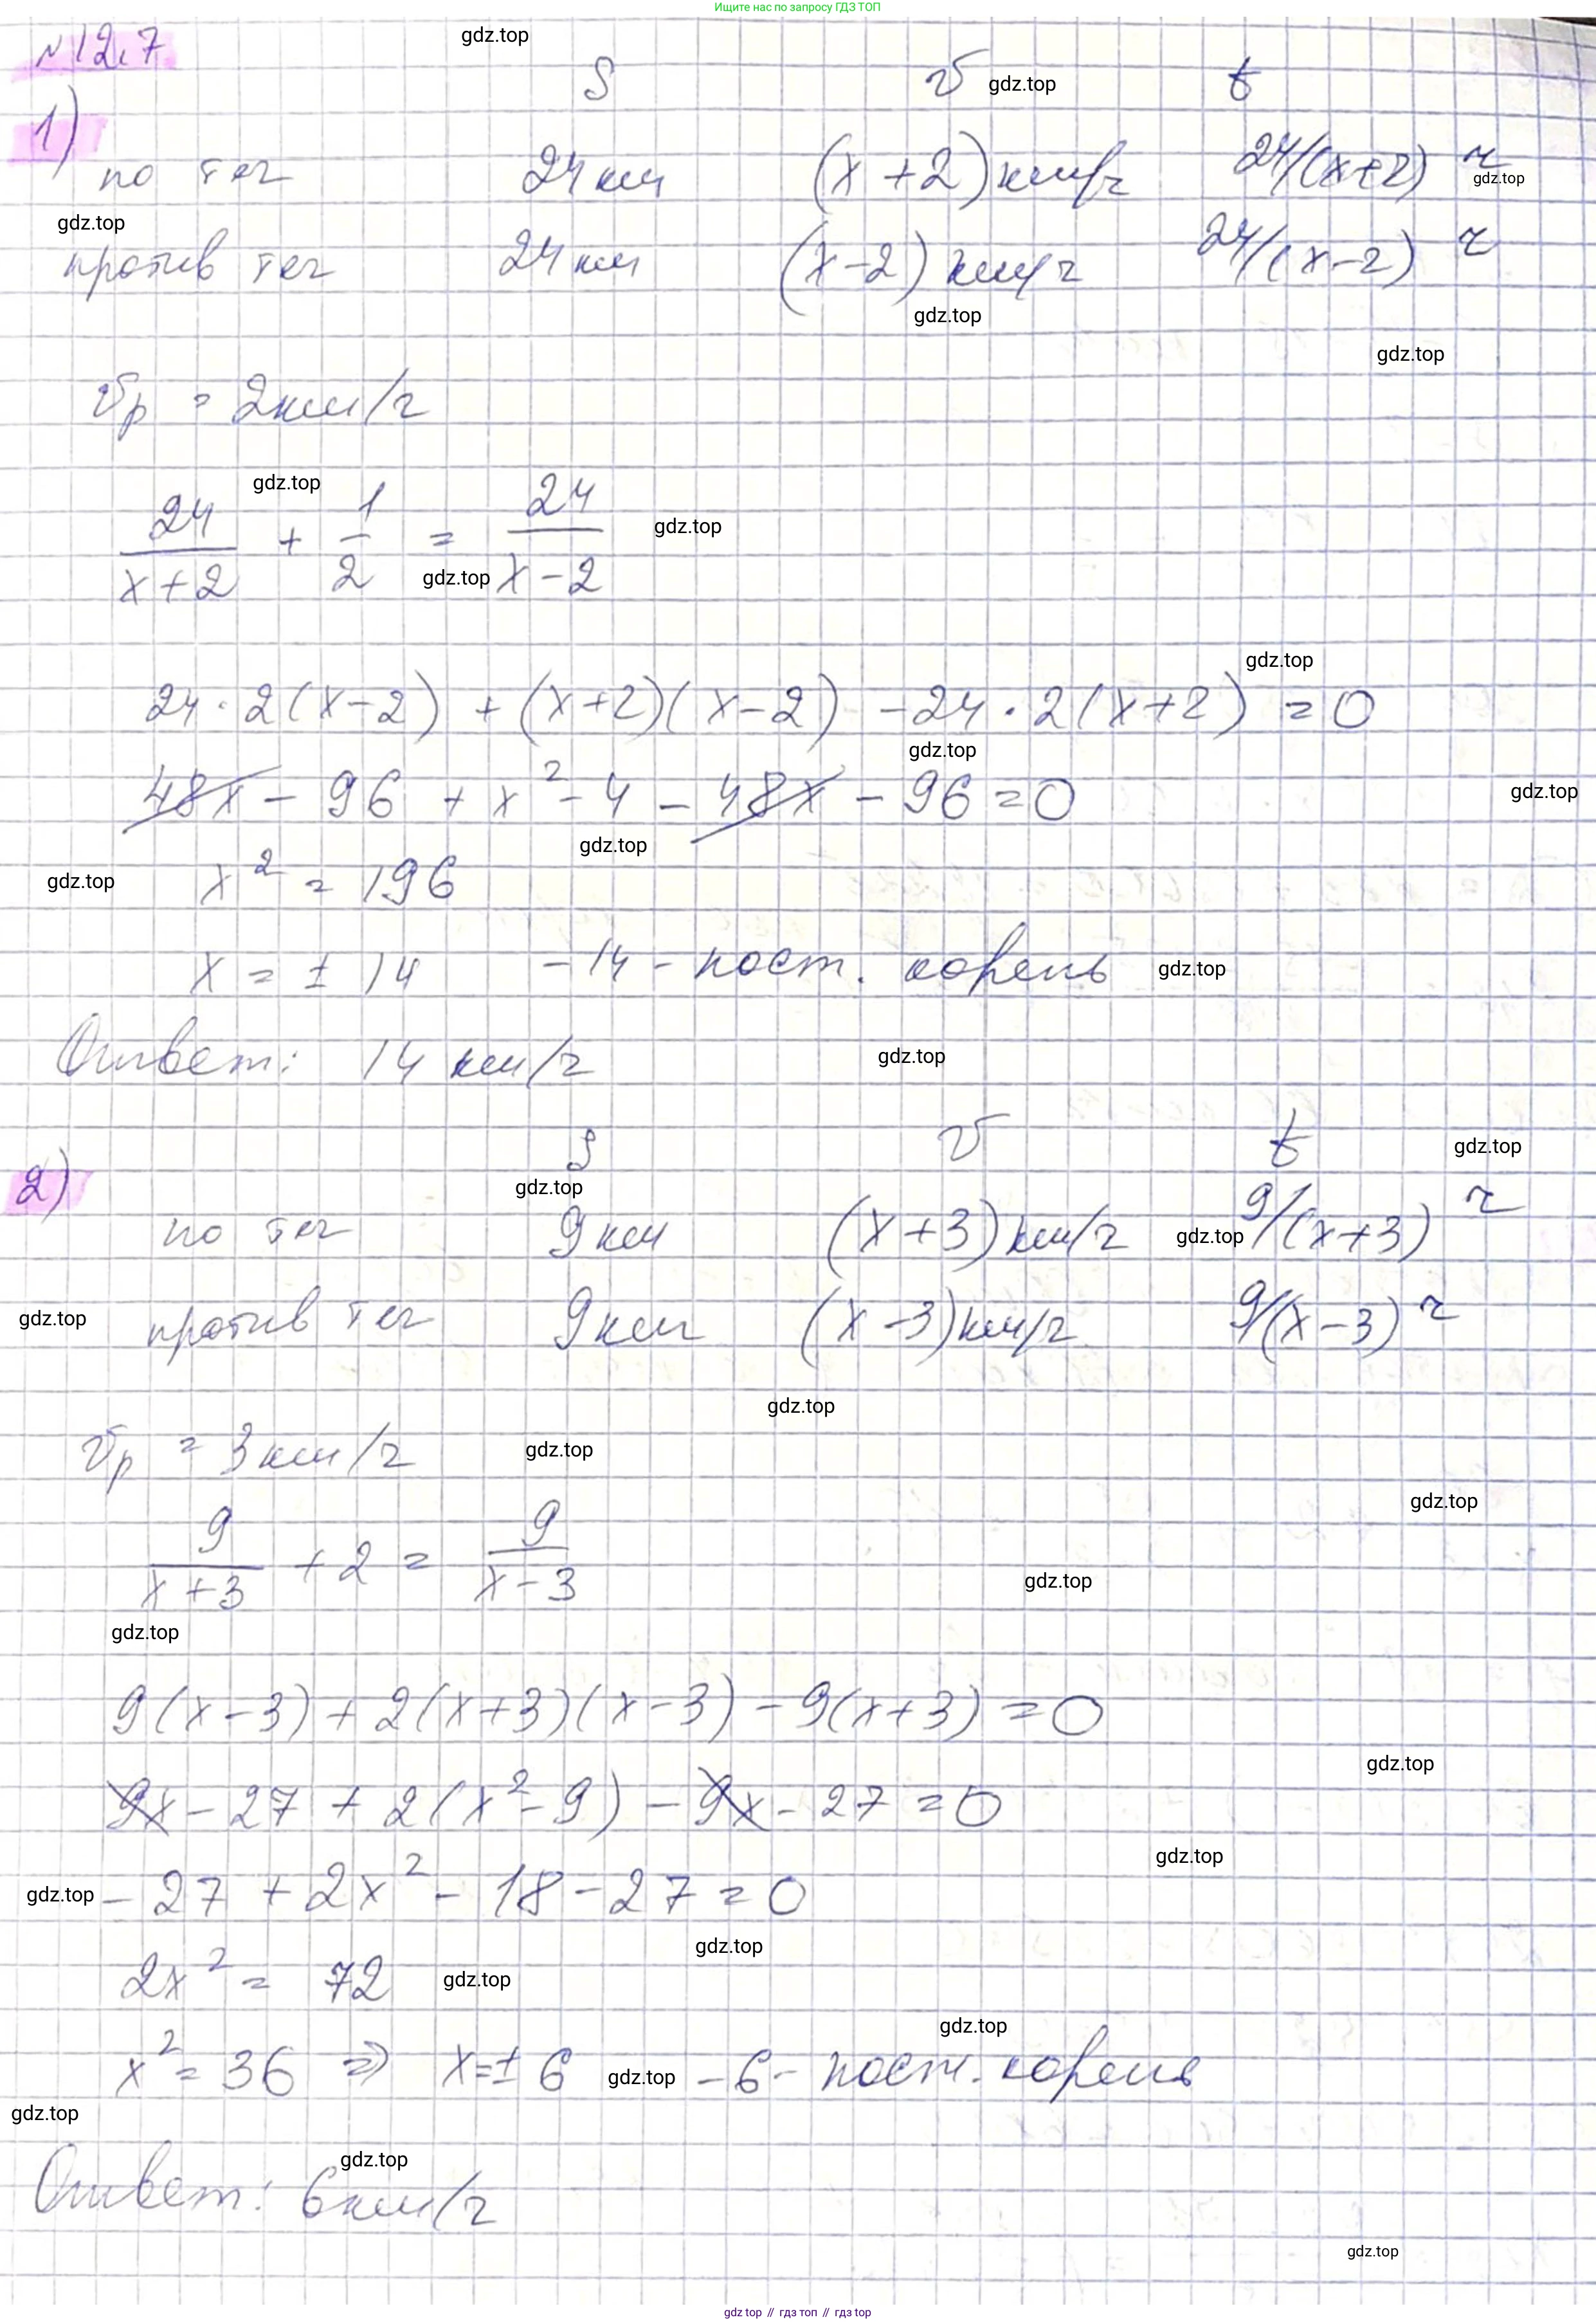 Ищите нас по запросу ГДЗ ТОП
№12.7
gdz.top
S v gdz.top t
1)
по теч 24 км (x + 2) км/ч 24/(x+2) ч
gdz.top
gdz.top
против теч 24 км (x-2) км/ч 24/(x-2) ч
gdz.top
gdz.top
vр = 2 км/ч
gdz.top
24/(x+2) + 1/2 = 24/(x-2)
gdz.top
gdz.top
gdz.top
24·2(x-2) + (x+2)(x-2) - 24·2(x+2) = 0
gdz.top
48x - 96 + x² - 4 - 48x - 96 = 0
gdz.top
gdz.top
gdz.top x² = 196
x = ± 14 -14 - пост. корень gdz.top
Ответ: 14 км/ч gdz.top
S v t gdz.top
2)
gdz.top
по теч 9 км (x+3) км/ч gdz.top 9/(x+3) ч
gdz.top против теч 9 км (x-3) км/ч 9/(x-3) ч
gdz.top
vр = 3 км/ч gdz.top
gdz.top
9/(x+3) + 2 = 9/(x-3)
gdz.top
gdz.top
9(x-3) + 2(x+3)(x-3) - 9(x+3) = 0
gdz.top
9x - 27 + 2(x² - 9) - 9x - 27 = 0
gdz.top
gdz.top - 27 + 2x² - 18 - 27 = 0
gdz.top
2x² = 72 gdz.top
gdz.top
x² = 36 ⇒ x = ± 6 gdz.top -6 - пост. корень
gdz.top
gdz.top
Ответ: 6 км/ч
gdz.top
gdz.top // гдз топ // гдз top